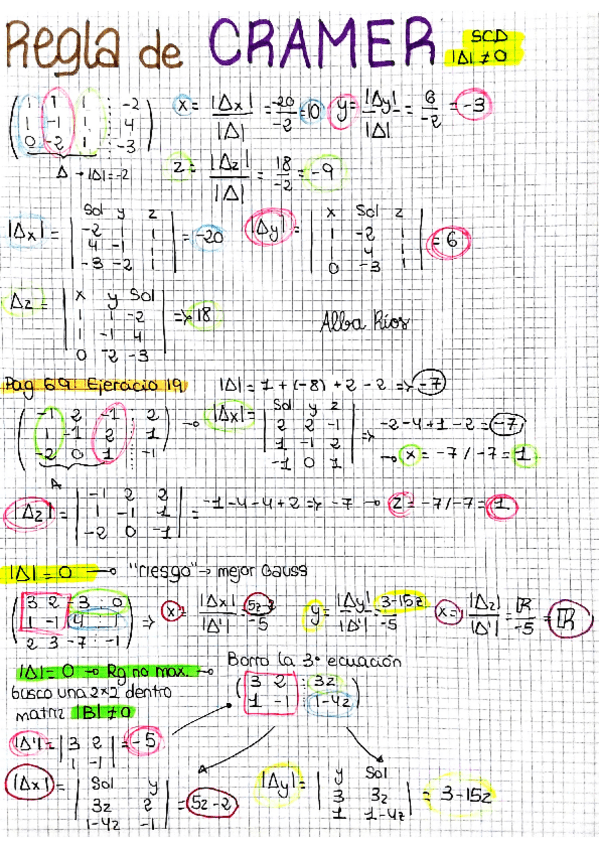 Regla de CRAMER SCD
|Δ| ≠ 0
( 1 1 1 : -2
1 -1 1 : 4
0 -2 1 : -3 )
Δ → |Δ| = -2
x = |Δx| / |Δ| = -20 / -2 = 10
y = |Δy| / |Δ| = 6 / -2 = -3
z = |Δz| / |Δ| = 18 / -2 = -9
|Δx| = | Sol y z
-2 1 1
4 -1 1
-3 -2 1 | = -20
|Δy| = | x Sol z
1 -2 1
1 4 1
0 -3 1 | = 6
Δz = | x y Sol
1 1 -2
1 -1 4
0 -2 -3 | => 18
Alba Ríos
Pag 69: Ejercicio 19
|Δ| = 1 + (-8) + 2 - 2 => -7
( -1 2 -1 : 2
1 -1 2 : 1
-2 0 1 : -1 )
Δ
→ |Δx| = | Sol y z
2 2 -1
1 -1 2
-1 0 1 | =>
-2 -4 + 1 - 2 = -7
→ x = -7 / -7 = 1
|Δz| = | -1 2 2
1 -1 1
-2 0 -1 | = -1 -4 -4 +2 => -7 → z = -7/-7 = 1
|Δ| = 0 → "riesgo" → mejor Gauss
( 3 2 3 : 0
1 -1 4 : 1
2 3 -7 : -1 ) =>
x = |Δx| / |Δ'| = 5z-2 / -5
y = |Δy| / |Δ'| = 3-15z / -5
x = |Δz| / |Δ'| = ℝ / -5 = ℝ
|Δ| = 0 → Rg no max. → Borro la 3ª ecuación
busco una 2x2 dentro
matriz |B| ≠ 0
( 3 2 : 3z
1 -1 : 1-4z )
|Δ'| = | 3 2
1 -1 | = -5
|Δx| = | Sol y
3z 2
1-4z -1 | = 5z-2
|Δy| = | y Sol
3 3z
1 1-4z | = 3-15z